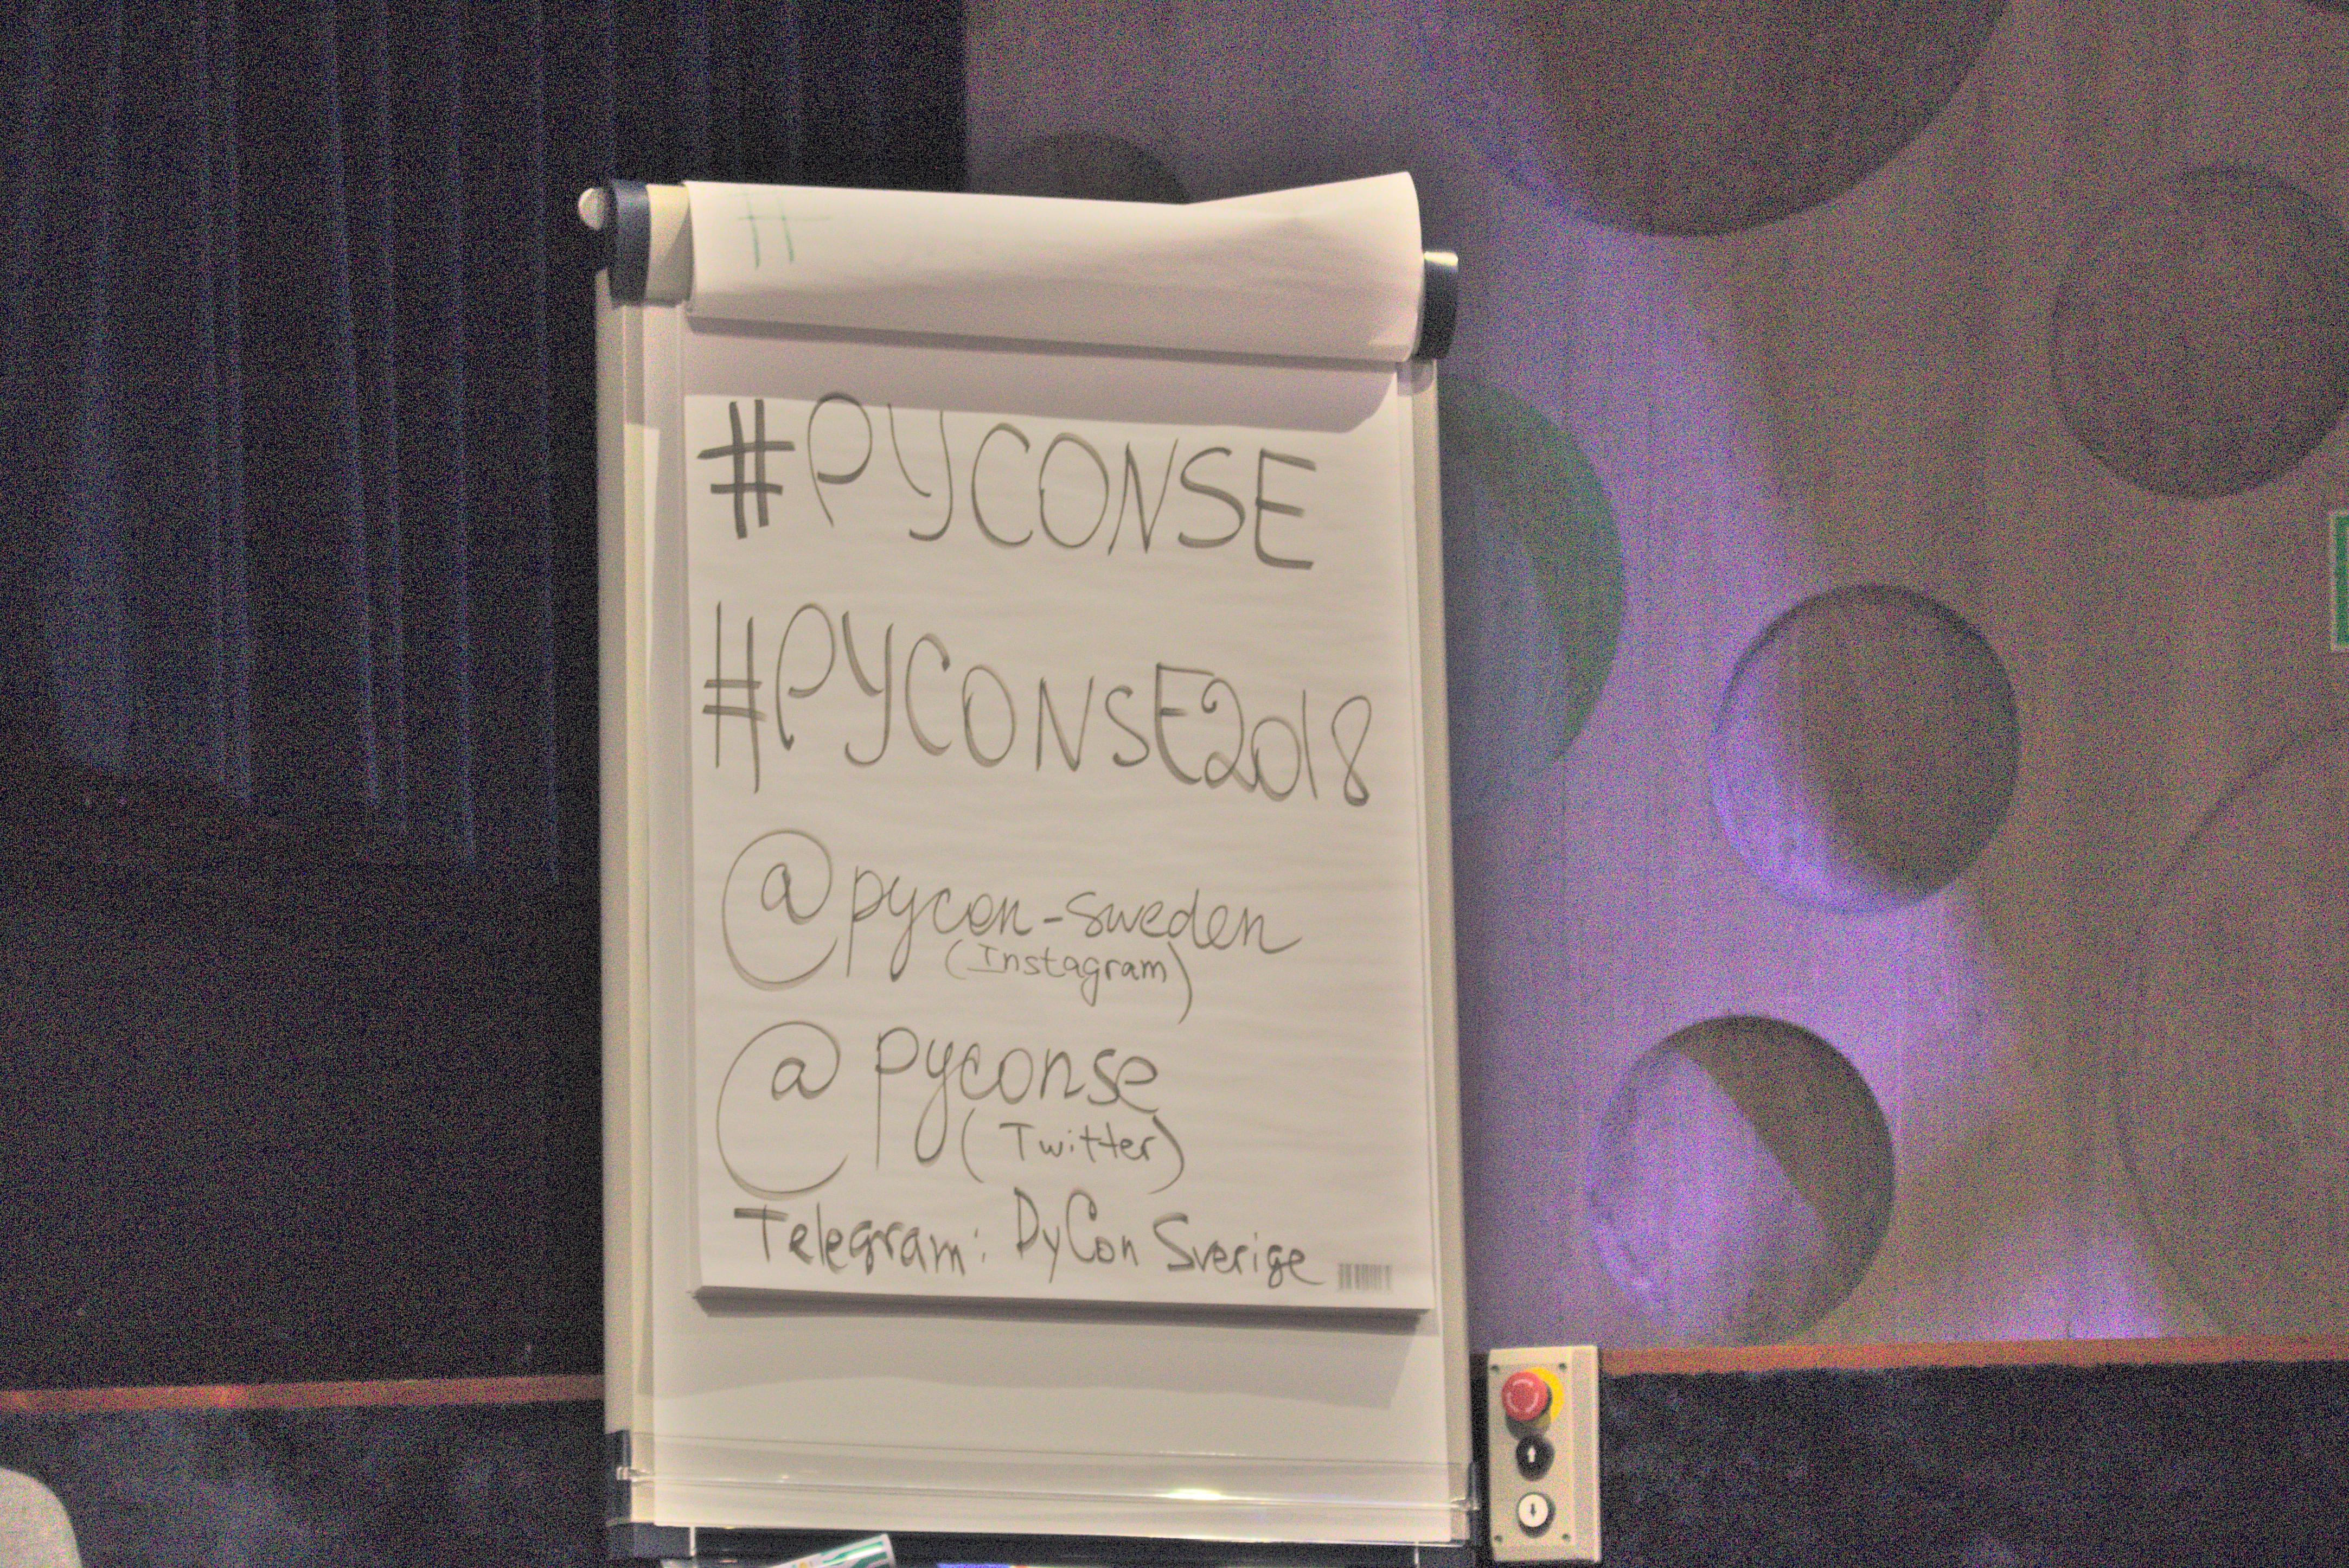 #
#PYCONSE
#PYCONSE2018
@pycon-sweden
(Instagram)
@pyconse
(Twitter)
Telegram: PyCon Sverige